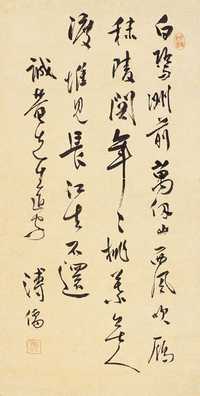 白鷺洲前萬仞山西風吹雁
秣陵關年々桃葉無人
渡惟見長江去不還
誠菴先生
溥儒